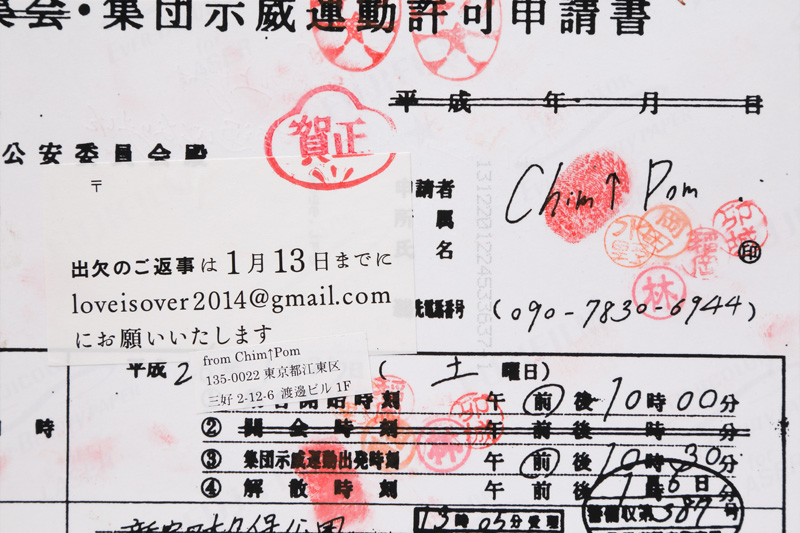 集会・集団示威運動許可申請書
平成 年 月 日
賀正
公安委員会殿
請者
Chim↑Pom
属
名
印
林
〒
出欠のご返事は1月13日までに
loveisover2014@gmail.com
にお願いいたします
(090-7830-6944)
from Chim↑Pom
135-0022 東京都江東区
三好 2-12-6 渡邊ビル 1F
平成 2 (土曜日)
時
時刻 午前後 10時00分
② 開会時刻 午前後 時 分
③ 集団示威運動出発時刻 午前後 10時30分
④ 解散時刻 午前後 時 分
1月6日
13時05分受理
警備収第387号